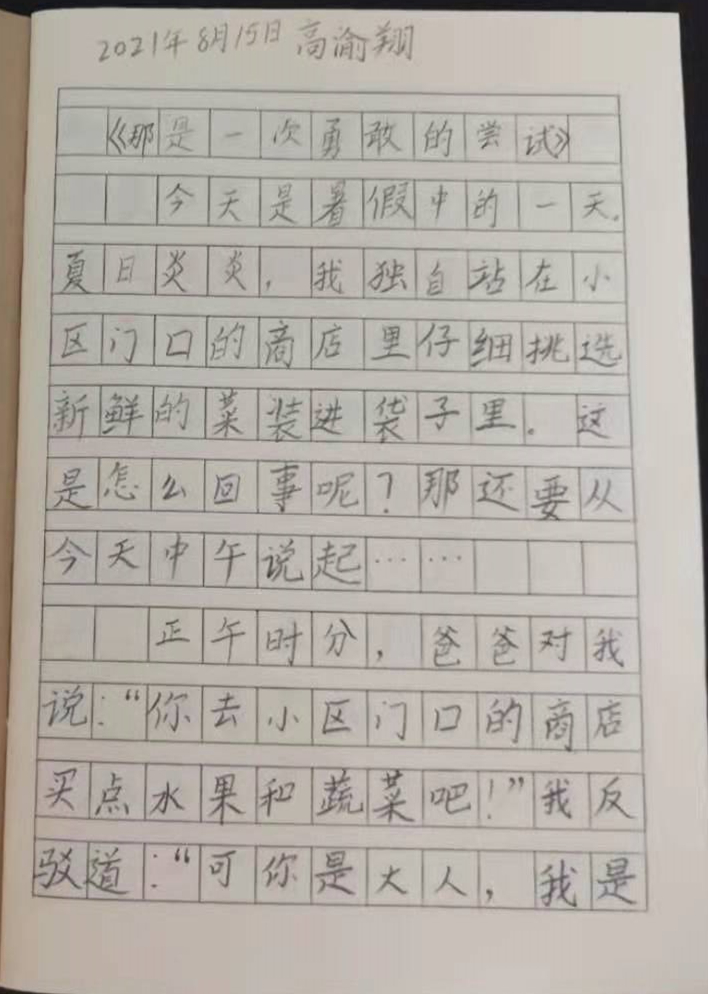 2021年8月15日 高渝翔
《那是一次勇敢的尝试》
今天是暑假中的一天。
夏日炎炎，我独自站在小
区门口的商店里仔细挑选
新鲜的菜装进袋子里。这
是怎么回事呢？那还要从
今天中午说起……
正午时分，爸爸对我
说：“你去小区门口的商店
买点水果和蔬菜吧！”我反
驳道：“可你是大人，我是